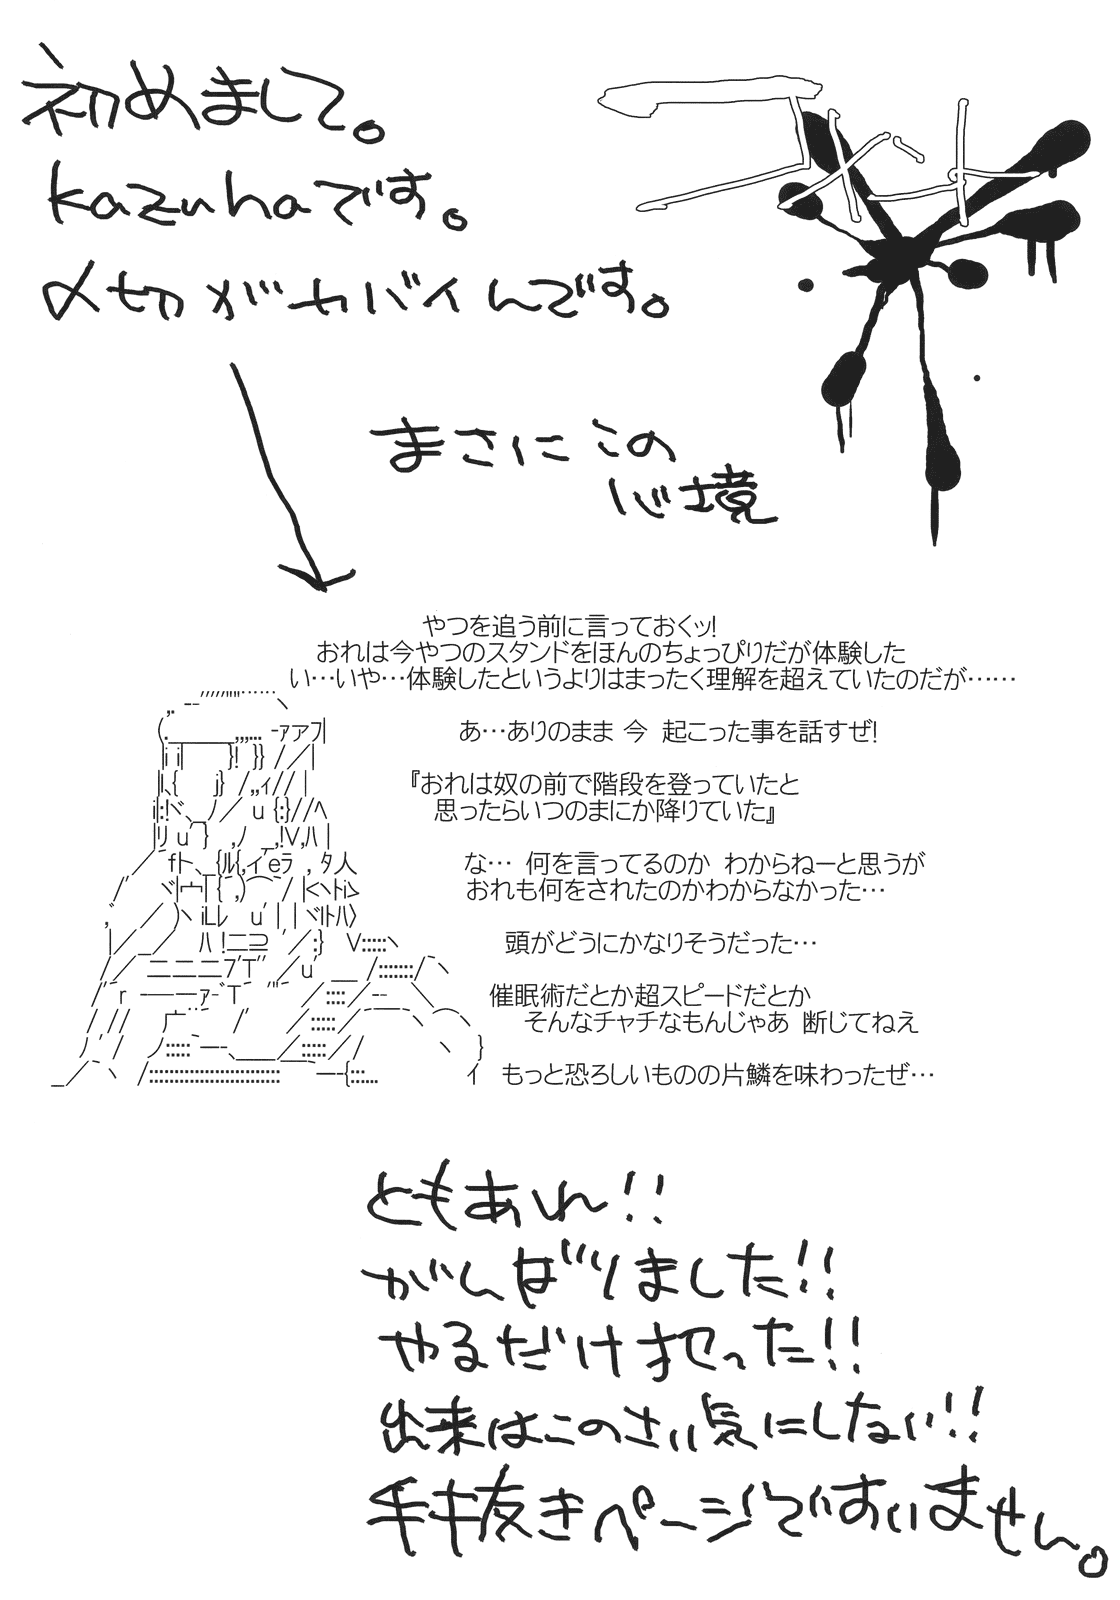 初めまして。
kazuhaです。
〆切がヤバイんです。
まさにこの
心境
やつを追う前に言っておくッ!
おれは今やつのスタンドをほんのちょっぴりだが体験した
い…いや…体験したというよりはまったく理解を超えていたのだが……
あ…ありのまま 今 起こった事を話すぜ!
『おれは奴の前で階段を登っていたと
思ったらいつのまにか降りていた』
な… 何を言ってるのか わからねーと思うが
おれも何をされたのかわからなかった…
頭がどうにかなりそうだった…
催眠術だとか超スピードだとか
そんなチャチなもんじゃあ 断じてねえ
もっと恐ろしいものの片鱗を味わったぜ…
ともあれ!!
がんばりました!!
やるだけやった!!
出来はこのさい気にしない!!
手抜きページですいません。